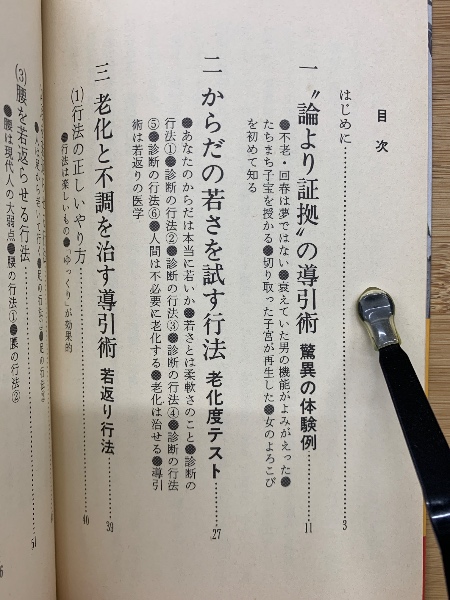 目次
はじめに……………………………3
一 〝論より証拠〟の導引術 驚異の体験例……11
●不老・回春は夢ではない●衰えていた男の機能がよみがえった●
たちまち子宝を授かる●切り取った子宮が再生した●女のよろこび
を初めて知る
二 からだの若さを試す行法 老化度テスト……27
●あなたのからだは本当に若いか●若さとは柔軟さのこと●診断の
行法①●診断の行法②●診断の行法③●診断の行法④●診断の行法
⑤●診断の行法⑥●人間は不必要に老化する●老化は治せる●導引
術は若返りの医学
三 老化と不調を治す導引術 若返り行法……39
(1) 行法の正しいやり方……40
●行法は楽しいもの●〝ゆっくり〟が効果的
51
(3) 腰を若返らせる行法……
●腰は現代人の大弱点●腰の行法①●腰の行法②